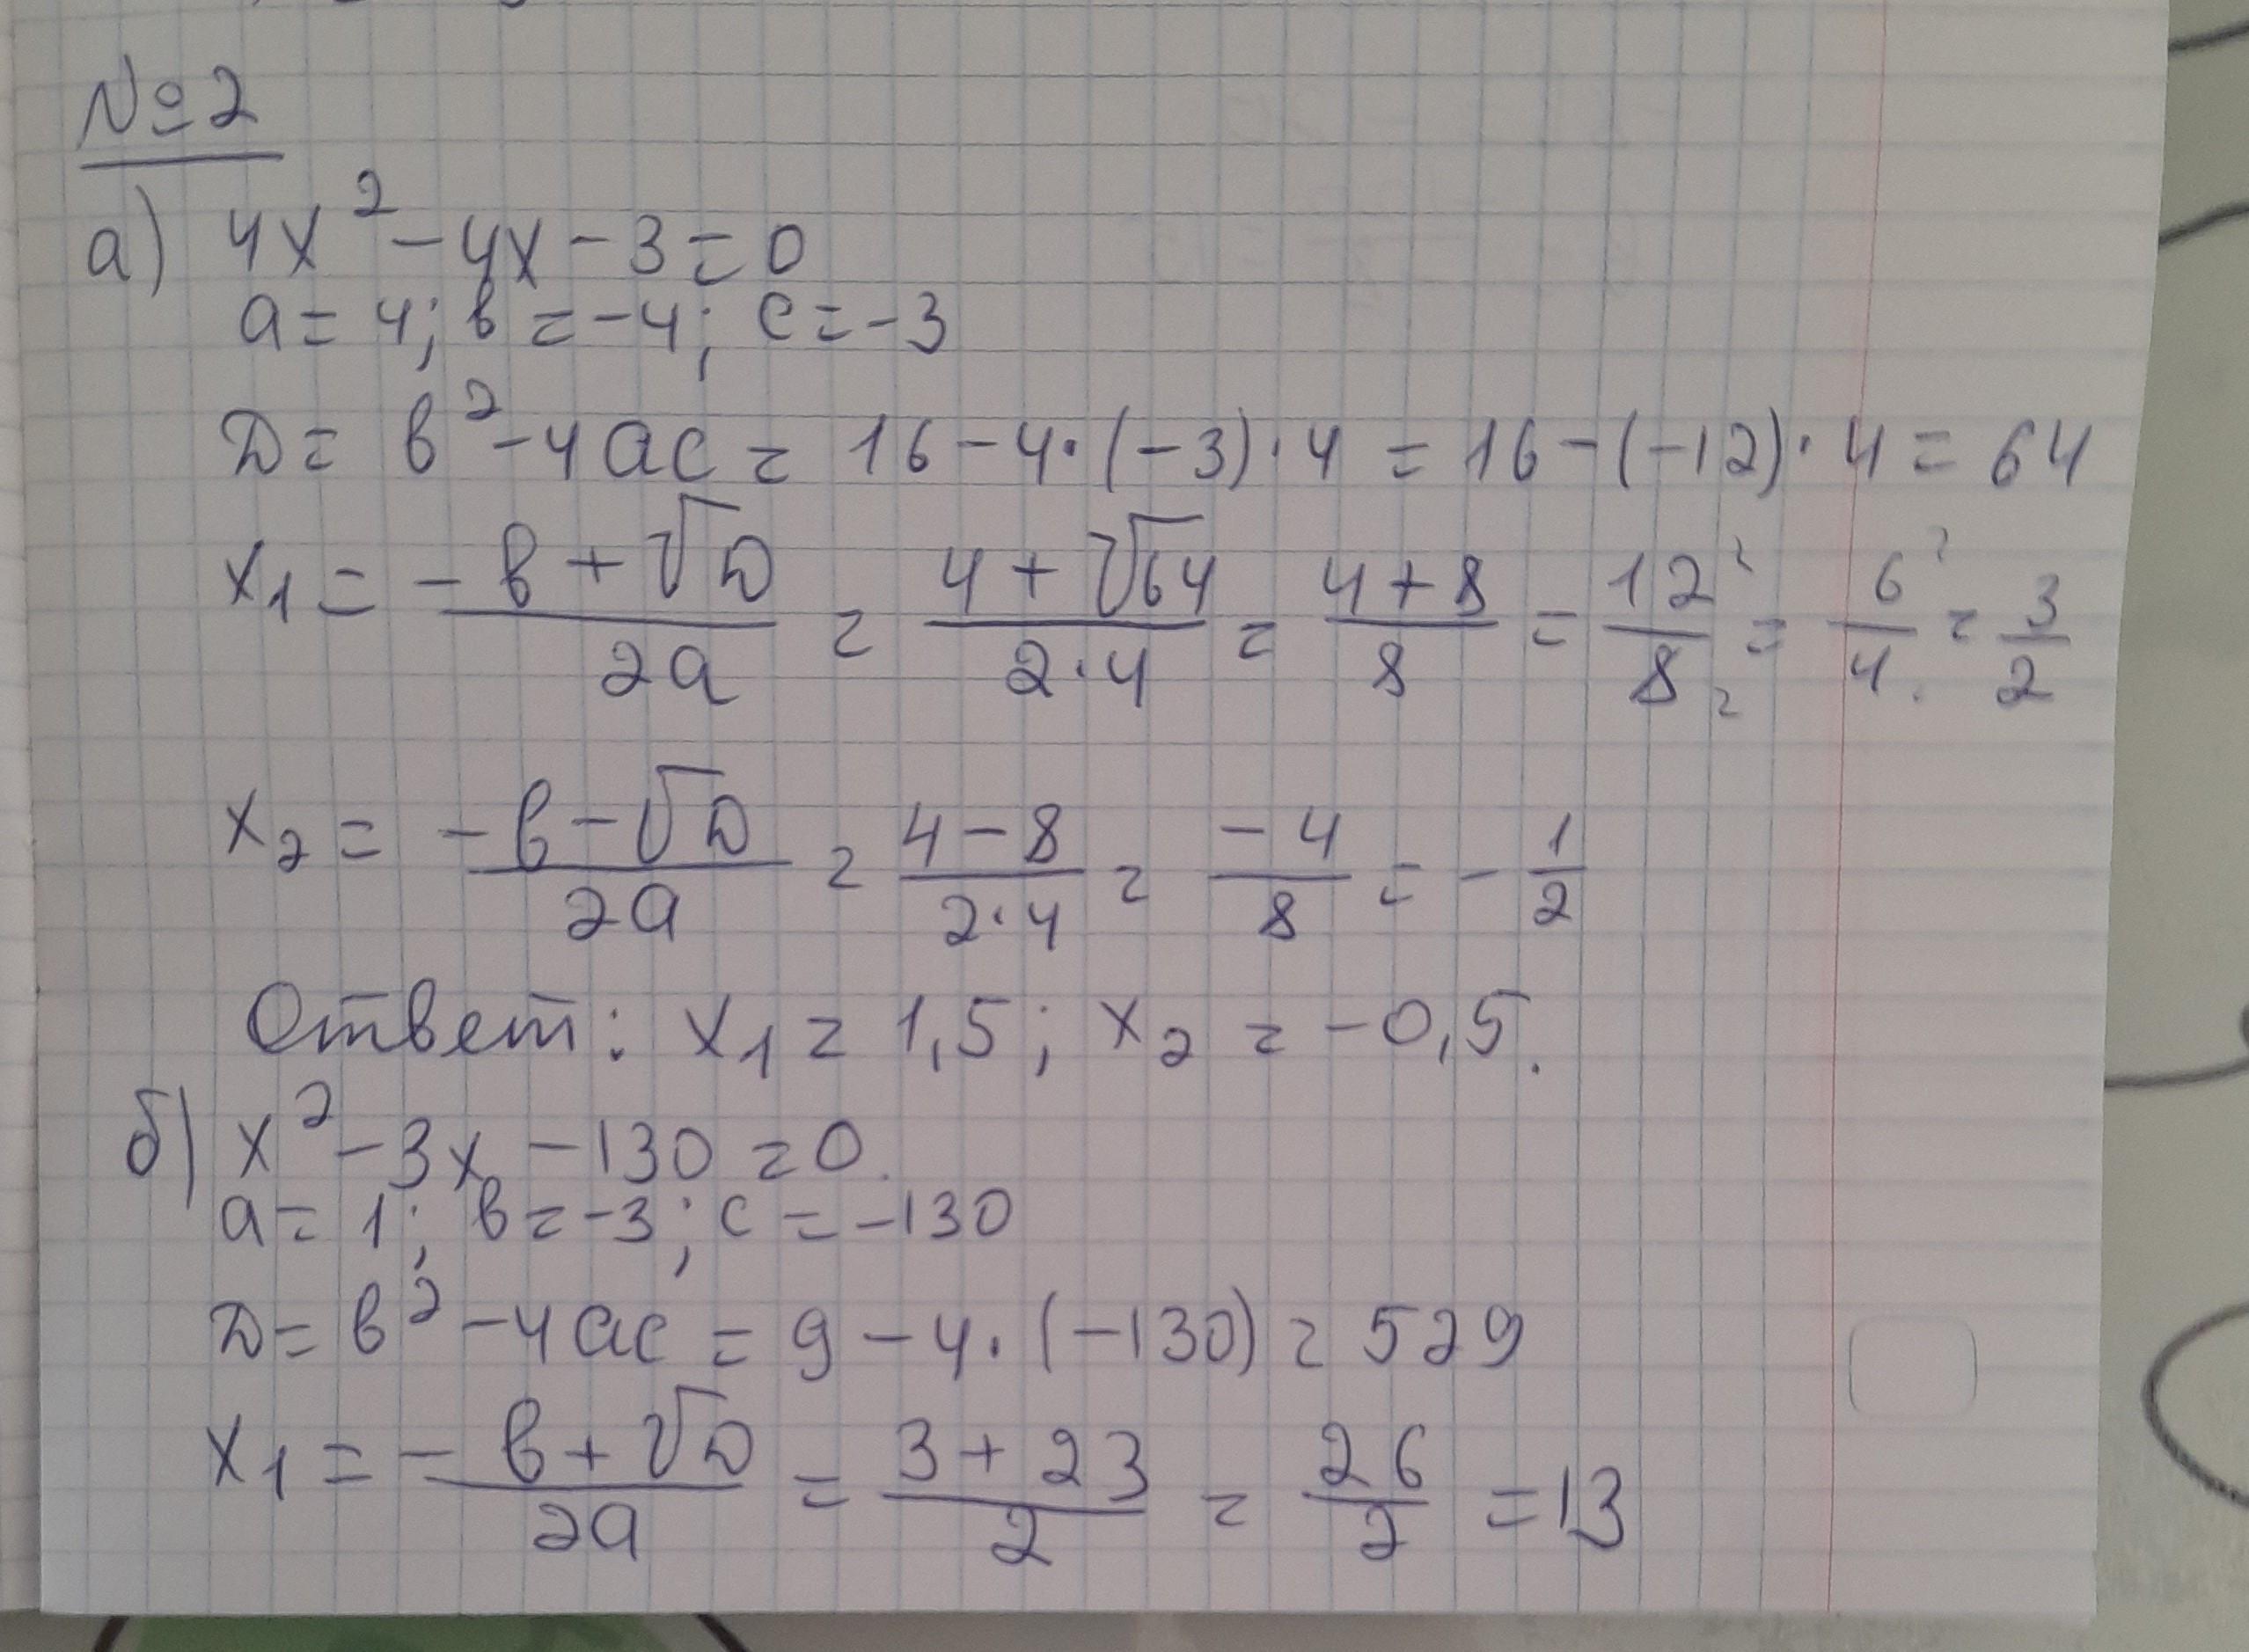 №2
а) 4x² - 4x - 3 = 0
a = 4; в = -4; c = -3
D = в² - 4ac = 16 - 4·(-3)·4 = 16 - (-12)·4 = 64
x₁ = (-в + √D)/2a = (4 + √64)/(2·4) = (4 + 8)/8 = 12/8 = 6/4 = 3/2
x₂ = (-в - √D)/2a = (4 - 8)/(2·4) = -4/8 = -1/2
Ответ: x₁ = 1,5; x₂ = -0,5.
б) x² - 3x - 130 = 0.
a = 1; в = -3; c = -130
D = в² - 4ac = 9 - 4·(-130) = 529
x₁ = (-в + √D)/2a = (3 + 23)/2 = 26/2 = 13